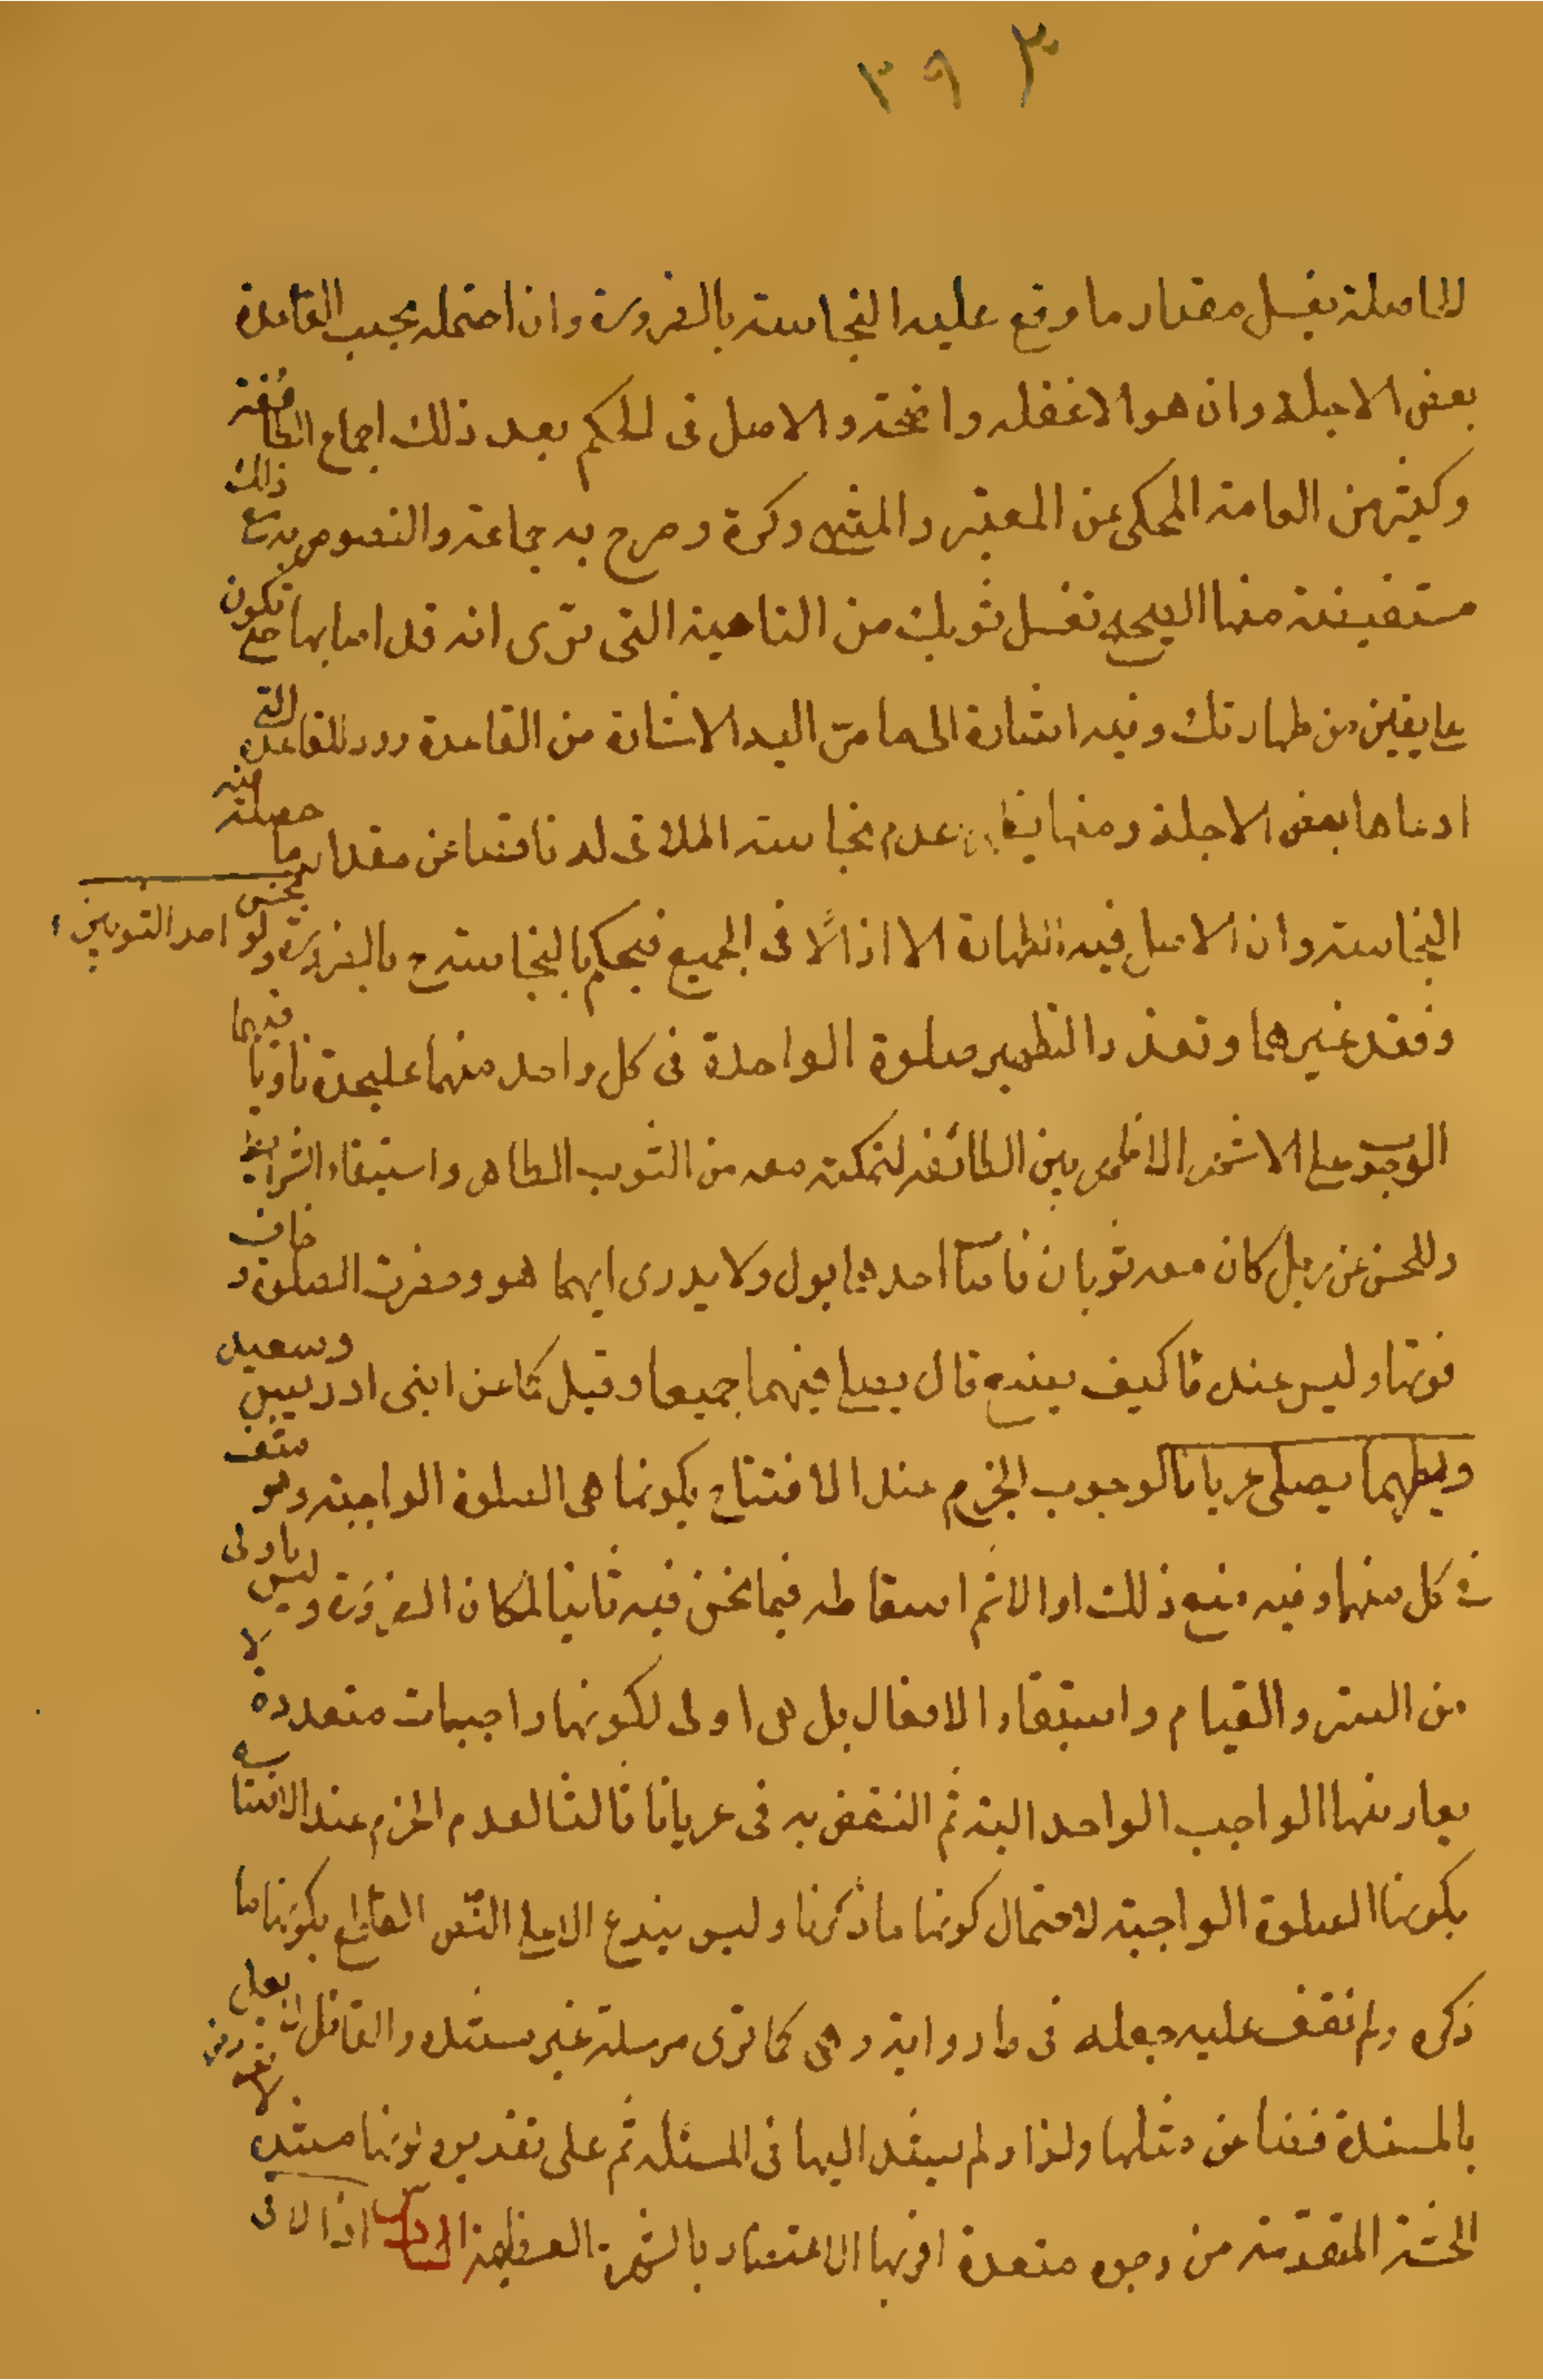 ٣٩٣
الحاصلة بغسل مقدار ما وقع عليه النجاسة بالضرورة وان احتمله بحسب القاعدة
بعض الاجلة وان هو الا غفلة واضحة والاصل فى الحكم بعد ذلك اجماع الطائفة
وكثير من العامة المحكى عن المعتبر والمنتهى وكرة وصرح به جماعة والنصوص به مع ذلك
مستفيضة منها الصحيح تغسل ثوبك من الناحية التى ترى انه قد اصابها حتى تكون
على يقين من طهارتك وفيه اشارة الى ما مر اليه الاشارة من القاعدة ورد للقاعدة التى
ادعاها بعض الاجلة ومنها عدم نجاسة الملاقى له ناقضا عن مقدار ما حصلته
النجاسة وان الاصل فيه الطهارة الا اذا لاقى الجميع فيحكم بالنجاسة ح بالضرورة ولو نجس احد الثوبين
وفقد غيرهما وتعذر التطهير صلوة الواحدة فى كل واحد منهما عليحدة ناويا فيهما
الوجوب على الاشهر الاظهر بين الطائفة لتمكنه معه من الثوب الطاهر واستيفاء الشرائط
وللحسن عن رجل كان معه ثوبان فاصاب احدهما بول ولا يدرى ايهما هو وحضرت الصلوة وخاف
فوتها وليس عنده ماء كيف يصنع قال يصلى فيهما جميعا وقيل كما عن ابنى ادريس وسعيد
يصلى عريانا لوجوب الجزم عند الافتتاح بكونها هى الصلوة الواجبة وهو منتف
فى كل منها وفيه منع ذلك اولا ثم اسقاطه فيما نحن فيه ثانيا لمكان الضرورة وليس باولى
من الستر والقيام واستيفاء الافعال بل هى اولى لكونها واجبات متعددة لا
يعارضها الواجب الواحد البتة ثم النقض به فى عريانا ثالثا لعدم الجزم عند الافتتاح
بكونها الصلوة الواجبة لاحتمال كونها ما ذكرنا وليس يندفع الا على النص القاطع بكونها ما
ذكره ولم نقف عليه جعله فى رواية وهى كما ترى مرسلة غير مسندة والقائل
بالمسندة فضلا عن مثلها ولذا لم يستند اليها فى المسئلة ثم على تقدير كونها مسندة
الحسنة المتقدمة من وجوه متعددة اقربها الاعتضاد بالشهرة العظيمة اذا لاقى